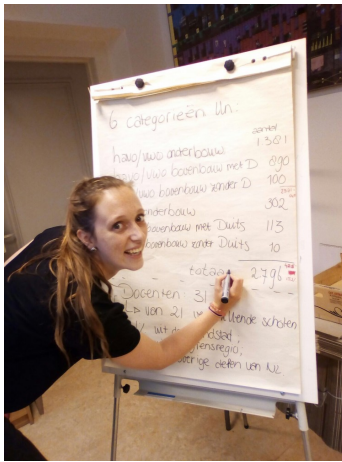 6 categorieën lln:
aantal
havo/vwo onderbouw 1.381
havo/vwo bovenbouw met D 890
vwo bovenbouw zonder D 100
onderbouw 302
bovenbouw met Duits 113
bovenbouw zonder Duits 10
totaal 2.796
Docenten 31
van 21 scholen
uit de
overige delen van NL.